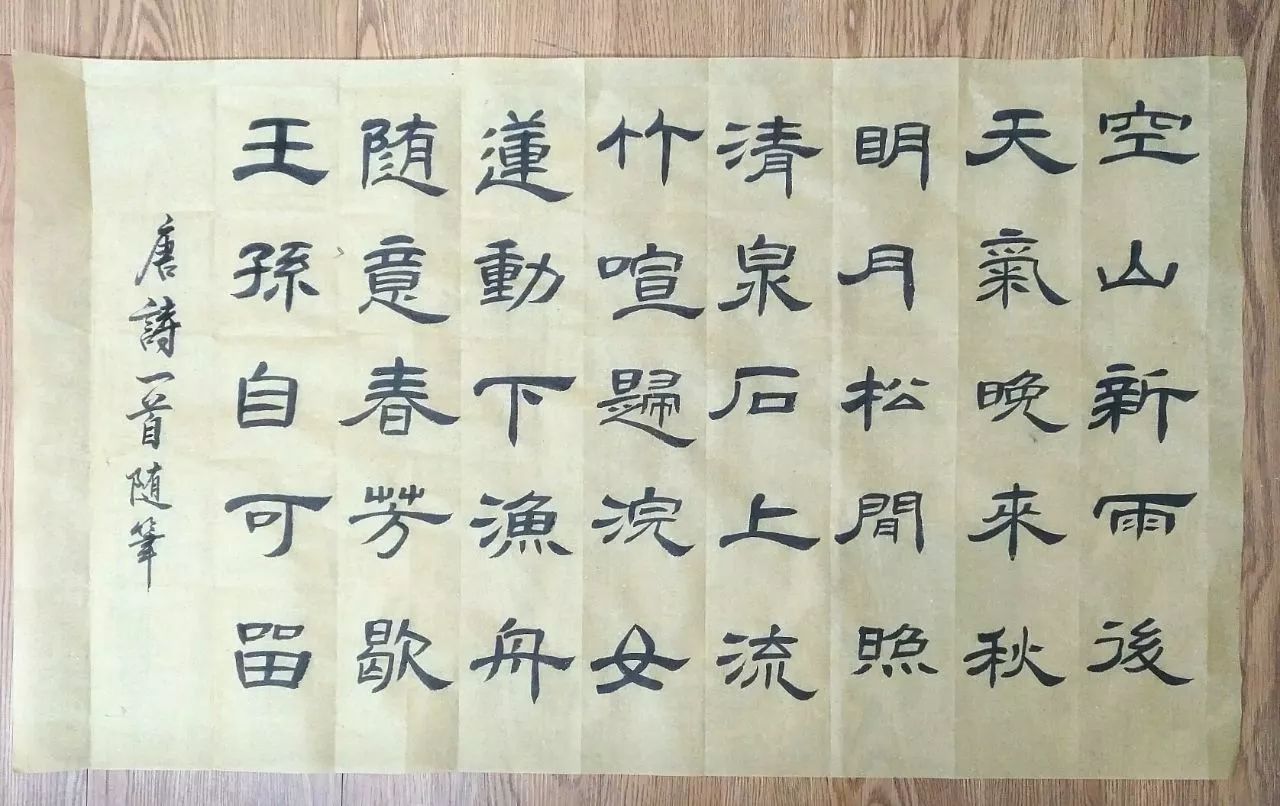 空山新雨後
天氣晚來秋
明月松間照
清泉石上流
竹喧歸浣女
蓮動下漁舟
随意春芳歇
王孫自可留
唐詩一首随筆